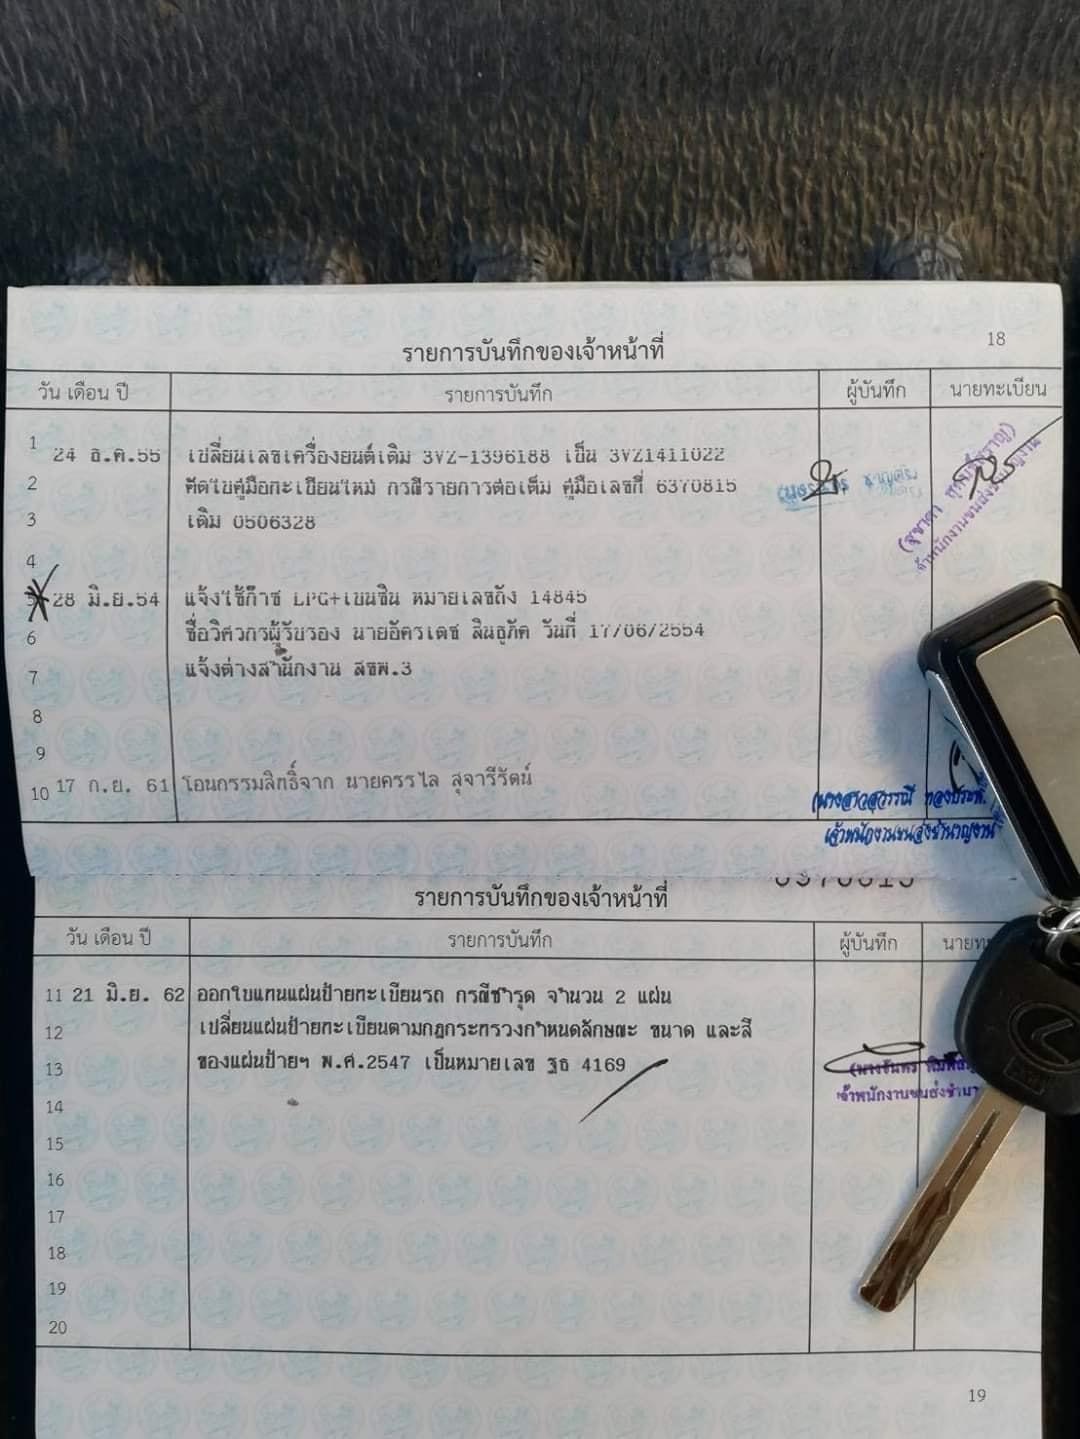 18
รายการบันทึกของเจ้าหน้าที่
วัน เดือน ปี รายการบันทึก ผู้บันทึก นายทะเบียน
1 24 ธ.ค.55 เปลี่ยนเลขเครื่องยนต์เดิม 3VZ-1396188 เป็น 3VZ1411022
2 คัดใบคู่มือทะเบียนใหม่ กรณีรายการต่อเต็ม คู่มือเลขที่ 6370815
3 เดิม 0506328
4
5 28 มิ.ย.54 แจ้งใช้ก๊าซ LPG+เบนซิน หมายเลขถัง 14845
6 ชื่อวิศวกรผู้รับรอง นายอัครเดช สินธูภัค วันที่ 17/06/2554
7 แจ้งต่างสำนักงาน สขพ.3
8
9
10 17 ก.ย. 61 โอนกรรมสิทธิ์จาก นายครรไล สุจารีรัตน์
(นางสาวสุวรรณี
เจ้าพนักงานขนส่งชำนาญงาน
รายการบันทึกของเจ้าหน้าที่
วัน เดือน ปี รายการบันทึก ผู้บันทึก
11 21 มิ.ย. 62 ออกใบแทนแผ่นป้ายทะเบียนรถ กรณีชำรุด จำนวน 2 แผ่น
12 เปลี่ยนแผ่นป้ายทะเบียนตามกฎกระทรวงกำหนดลักษณะ ขนาด และสี
13 ของแผ่นป้ายฯ พ.ศ.2547 เป็นหมายเลข ฐธ 4169
14
15
16
17
18
19
20
19